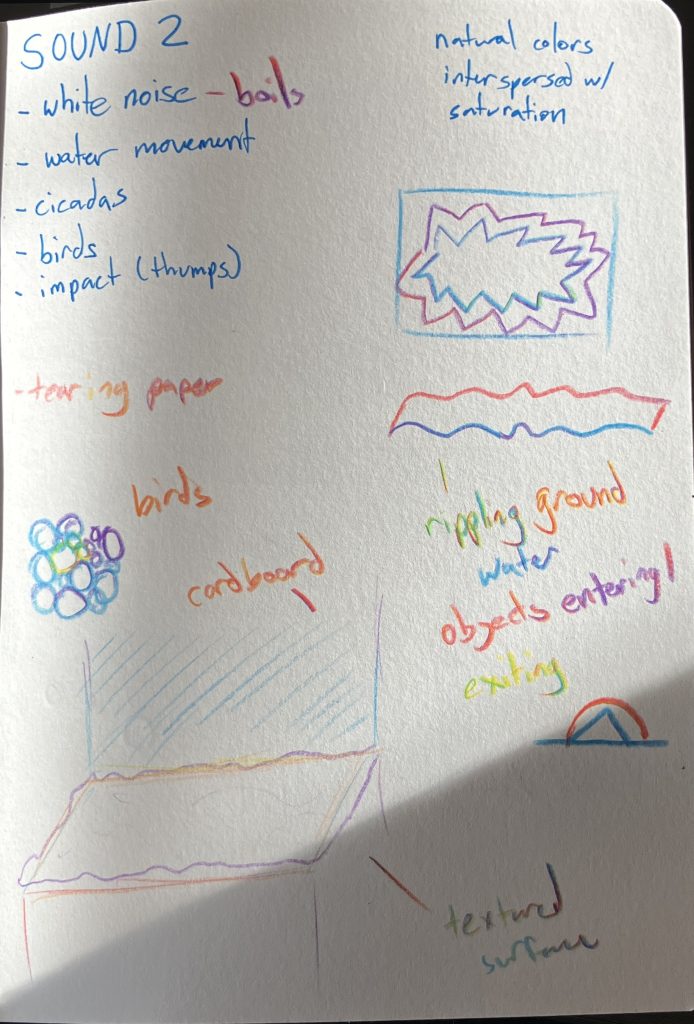 SOUND 2
- white noise - boils
- water movement
- cicadas
- birds
- impact (thumps)
- tearing paper
birds
cardboard
natural colors
interspersed w/
saturation
rippling ground
water
objects entering/
exiting
textured
surface